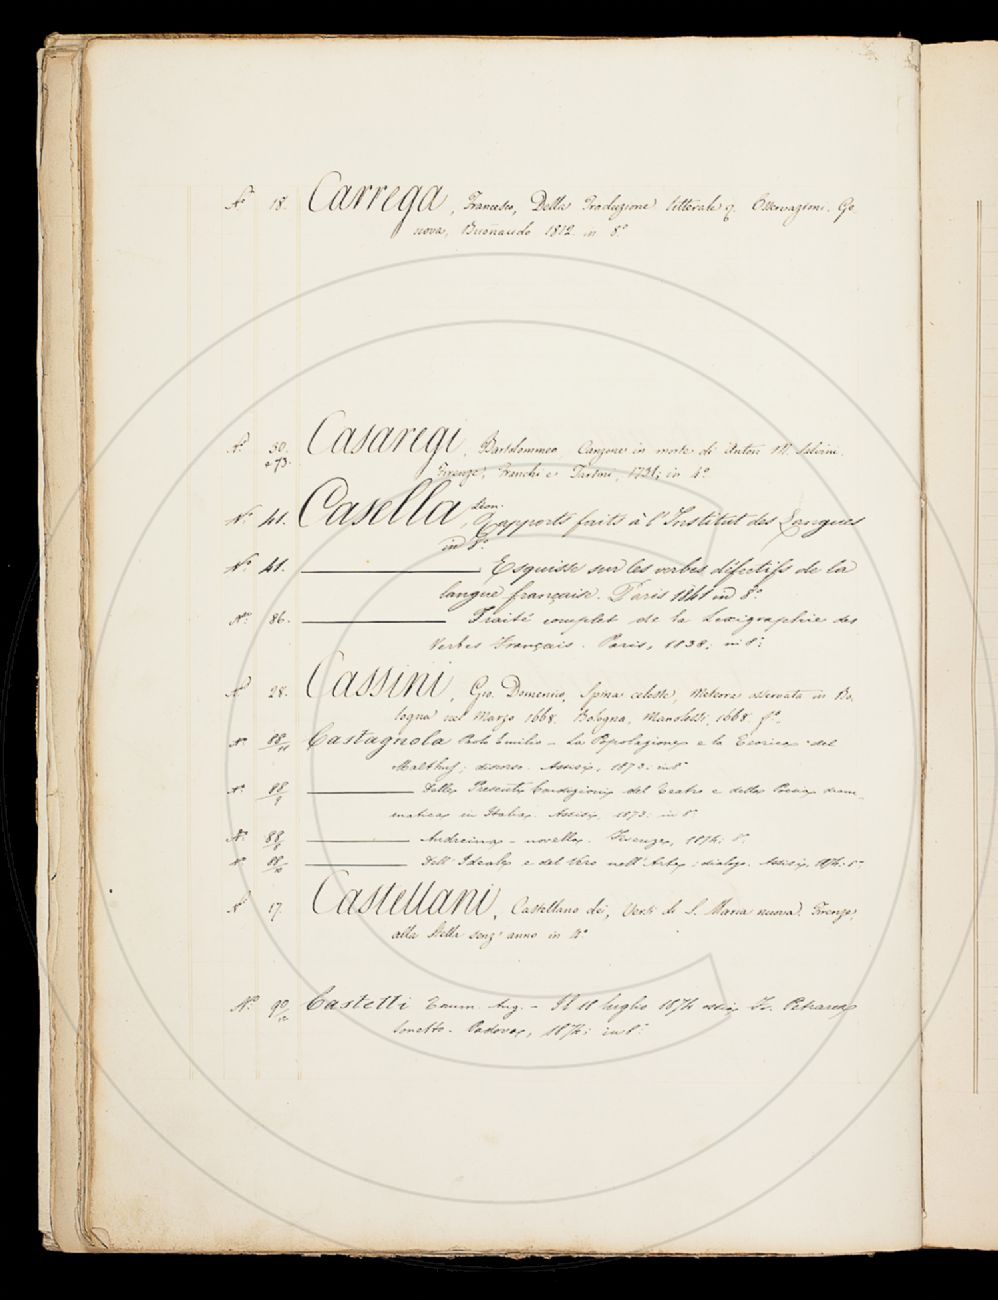 N.° 18. Carrega, Francesco, Della Traduzione litterale e Osservazioni. Ge-
nova, Buonaudo 1812 in 8.°
N.° 30. Casaregi, Bartolommeo, Canzone in morte di Anton M. Salvini.
e 73. Firenze, Franchi e Tartini, 1731; in 4.°
N.° 41. Casella, Léon. Rapports faits à l'Institut des Langues
in 8.°
N.° 41. Esquisse sur les verbes défectifs de la
langue française. Paris 1841 in 8.°
N.° 86. Traité complet de la Lexigraphie des
Verbes Français. Paris, 1838; in 8.°
N.° 28. Cassini, Gio. Domenico, Spina celeste, Meteora osservata in Bo-
logna nel Marzo 1668. Bologna, Manolessi, 1668. f.°
N.° 88/11 Castagnola Paolo Emilio - La Popolazione e la Teorica del
Malthus; discorso. Assisi, 1873; in 8.°
N.° 88/9 Delle Presenti Condizioni del Teatro e della Poesia dram-
matica in Italia. Assisi, 1873; in 8.°
N.° 88/8 Andreina - novella. Firenze, 1874; 8.°
N.° 88/10 Dell'Ideale e del Vero nell'Arte; dialogo. Assisi, 1874; 8.°
N.° 17. Castellani, Castellano dei, Versi di S. Maria nuova. Firenze,
alla Stella senz'anno in 4.°
N.° 90/ Castetti Aug. - Il 18 luglio 1874 ossia Fr. Petrarca
Sonetto. Padova, 1874; in 8.°